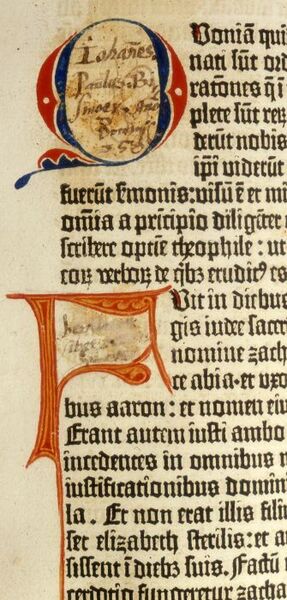 Iohañes
Paulus
Quoniã qui
nati sũt ord
ratõnes q̃ ĩ
plete sũt reꝝ
derũt nobis
ipĩ viderũt
fuerũt s̃monis: visũ ẽ et mi
om̃ia a prĩcipio diligẽter
scribere optĩe theophile: ut
eoꝝ verboꝝ de qͥbꝫ eruditꝰ es
Fuit in diebus
gis iudee sacer
nomine zach
ce abia · et uxo
bus aaron : et nomen eiu
Erant autem iusti ambo
incedentes in omnibus
iustificationibus domini
la. Et non erat illis filiu
set elizabeth sterilis: et a
sissent ĩ diebꝫ suis. Factũ
cerdotio fungeretur zacha